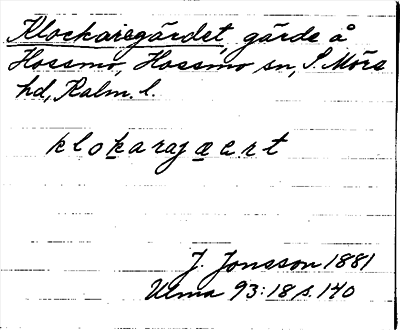 Klockaregärdet, gärde å
Hossmo, Hossmo sn, S. Möre
hd, Kalm. l.
klokarajært
J. Jonsson 1881
Ulma 93:18 s. 140